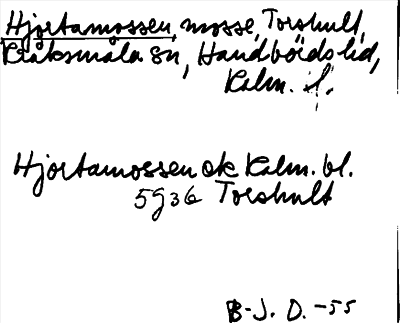 Hjortamossen, mosse, Torshult,
Kråksmåla sn, Handbörds hd,
Kalm. l.
Hjortamossen ek Kalm. bl.
5g36 Torshult
B-J. D. -55